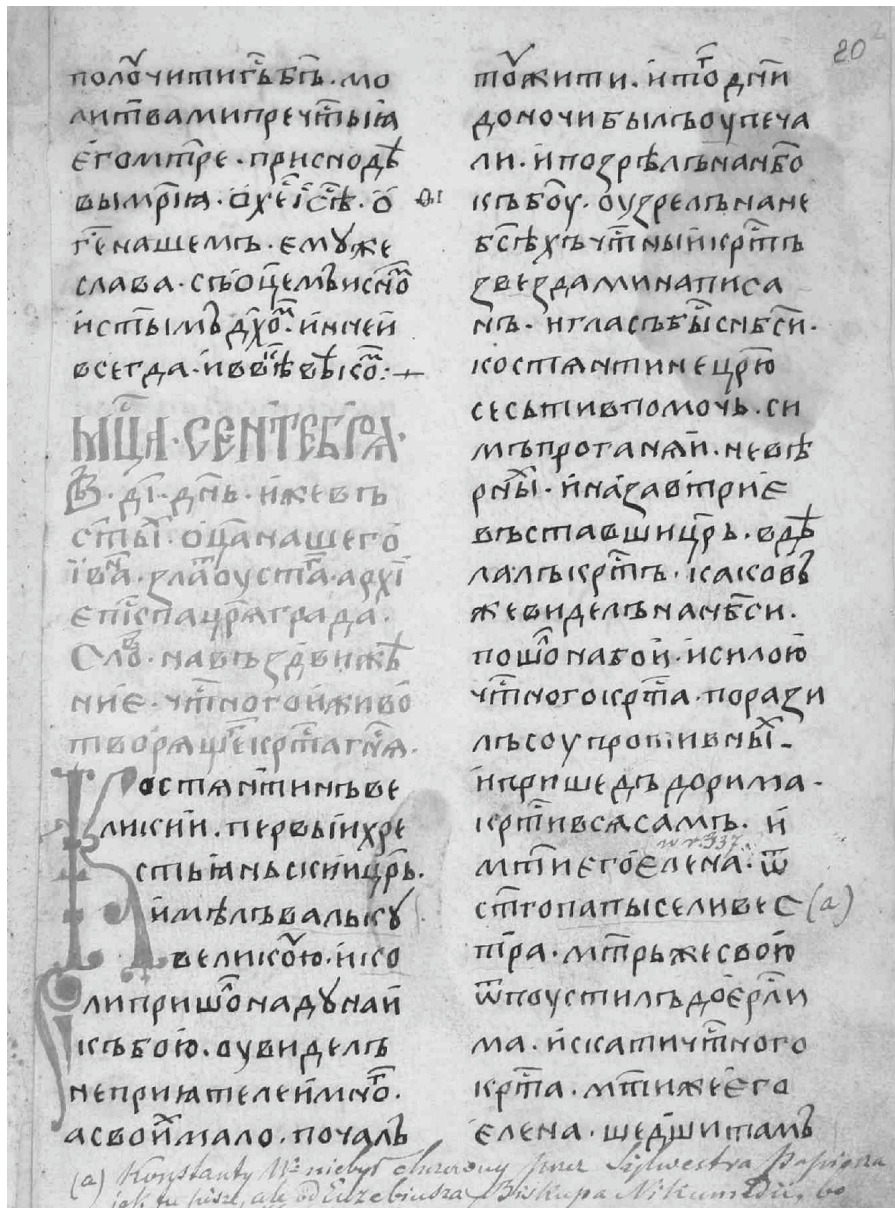 20
полꙋчитигⷭ҇ьбг҃ъ · мо
литвамипречⷭ҇тыꙗ
єгомт҃ре · приснодѣ
вымр҃іѧ · ѡхеⷭ҇їсѣ · ѡ
г҃енашемъ · ємꙋже
слава · съѡц҃емъиснⷨ҇о
истымъдх҃оⷨ · ин҃ней
всегда · иввⷦ҇ѣвѣкоⷨ :
мц҃а · сентебрѧ ·
В · д҃і · дн҃ь · ижевъ
ст҃ыⷯ · ѡц҃анашего
івⷩ҇а · златоустⷢ҇а · архї
єпⷭ҇іспацр҃ѧграда ·
Слоⷡ · навъздвижѣ
ниє · чтⷭ҇ногоиживо
творѧщⷢ҇екрⷭ҇тагн҃ѧ ·
Костѧнтинъве
ликии · первыихре
стьꙗньскиицр҃ь ·
имѣлъвалькꙋ
великоꙋю · ико
липришоⷧнадꙋнаи
къбою · оувиделъ
неприꙗтелеимноⷢ ·
асвоиⷯмало · почалъ
тоужити · итоⷢдн҃и
доночибылъоупеча
ли · ипозрѣлънанб҃о
къбоу · оузрелънане
бсѣхъчтⷭ҇ныикрⷭ҇тъ
звездаминаписа
нъ · игласъбыⷭснбс҃и ·
костѧнтинецр҃ю
сесьтивпомочь · си
мъпроганѧй · невѣ
рныⷯ · иназавтриє
въставшицр҃ь · вдѣ
лалъкрⷭ҇тъ · каковъ
жевиделънанбс҃и ·
пошоⷧнабои · исилою
чтⷭ҇ногокрⷭ҇та · порази
лъсоупротивныⷯ
ипришедъдорима ·
крⷭ҇тивсѧсамъ · и
мт҃иєгоєлена · ѿ
w r. 337.
стг҃опапыселивес (a)
тра · мт҃рьжесвою
ѿпоустилъдоєрⷭ҇ли
ма · искатичтⷭ҇ного
крⷭ҇та · мт҃ижеєго
єлена · шедшитамъ
(a) Konstanty W. niebył chrzczony przez Sylwestra Papieża
jak tu pisze, ale od Euzebiusza Biskupa Nikomedii, bo